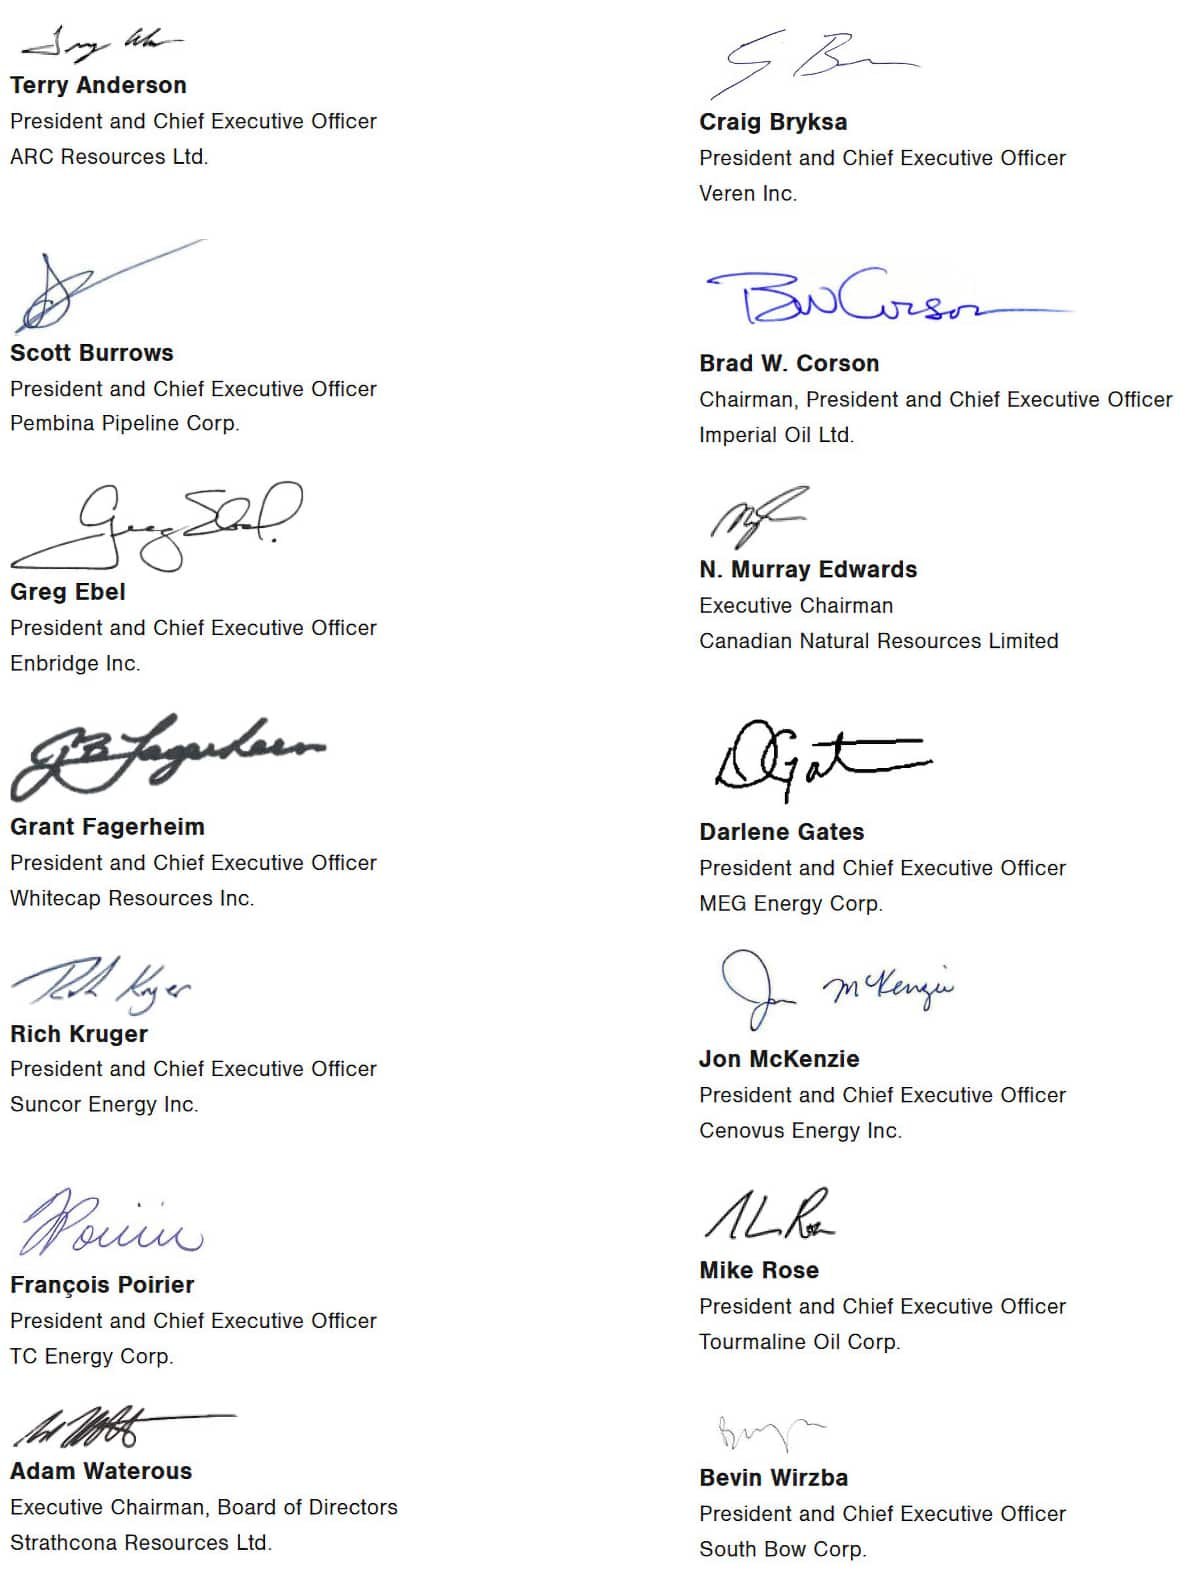 Terry Anderson
President and Chief Executive Officer
ARC Resources Ltd.
Craig Bryksa
President and Chief Executive Officer
Veren Inc.
Scott Burrows
President and Chief Executive Officer
Pembina Pipeline Corp.
BW Corson
Brad W. Corson
Chairman, President and Chief Executive Officer
Imperial Oil Ltd.
Greg Ebel
Greg Ebel
President and Chief Executive Officer
Enbridge Inc.
N. Murray Edwards
Executive Chairman
Canadian Natural Resources Limited
GB Fagerheim
Grant Fagerheim
President and Chief Executive Officer
Whitecap Resources Inc.
Darlene Gates
President and Chief Executive Officer
MEG Energy Corp.
Rich Kruger
President and Chief Executive Officer
Suncor Energy Inc.
Jon McKenzie
Jon McKenzie
President and Chief Executive Officer
Cenovus Energy Inc.
François Poirier
President and Chief Executive Officer
TC Energy Corp.
Mike Rose
President and Chief Executive Officer
Tourmaline Oil Corp.
Adam Waterous
Executive Chairman, Board of Directors
Strathcona Resources Ltd.
Bevin Wirzba
President and Chief Executive Officer
South Bow Corp.